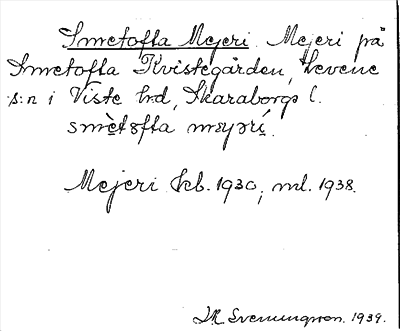 Smetofta Mejeri. Mejeri på
Smetofta Kvistegården, Levene
s:n i Viste hd, Skaraborgs l.
smètofta mejərí.
Mejeri kb. 1930, ml. 1938.
Svenungsson. 1939.